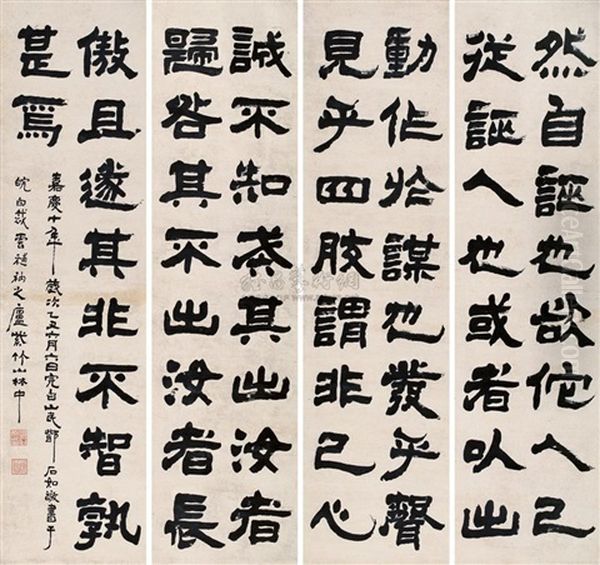 然自誣也欲佗人己
從誣人也或者以出
動作於謀也發乎聲
見乎四肢謂非己心
誠不知戒其出汝者
歸咎其不出汝者長
傲且遂其非不智孰
甚焉
嘉慶十年歲次乙丑六月六日完白山民鄧石如敬書于
皖白雲衲之廬紫竹山林中